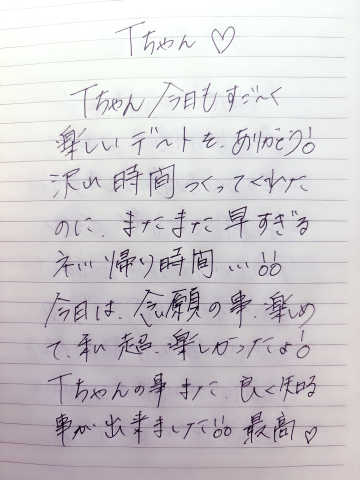 Tちゃん♡
Tちゃん今日もすご〜く
楽しいデートを、ありがとう!
沢山時間つくってくれた
のに、まだまだ早すぎる
ネ!!!帰り時間…!!
今日は、念願の事、楽しめ
て、私超、楽しかったよ!
Tちゃんの事また、良く知る
事が出来ました!!最高♡